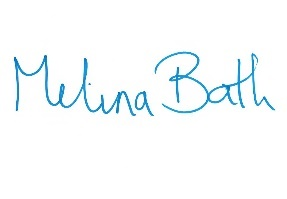 Melina Bath